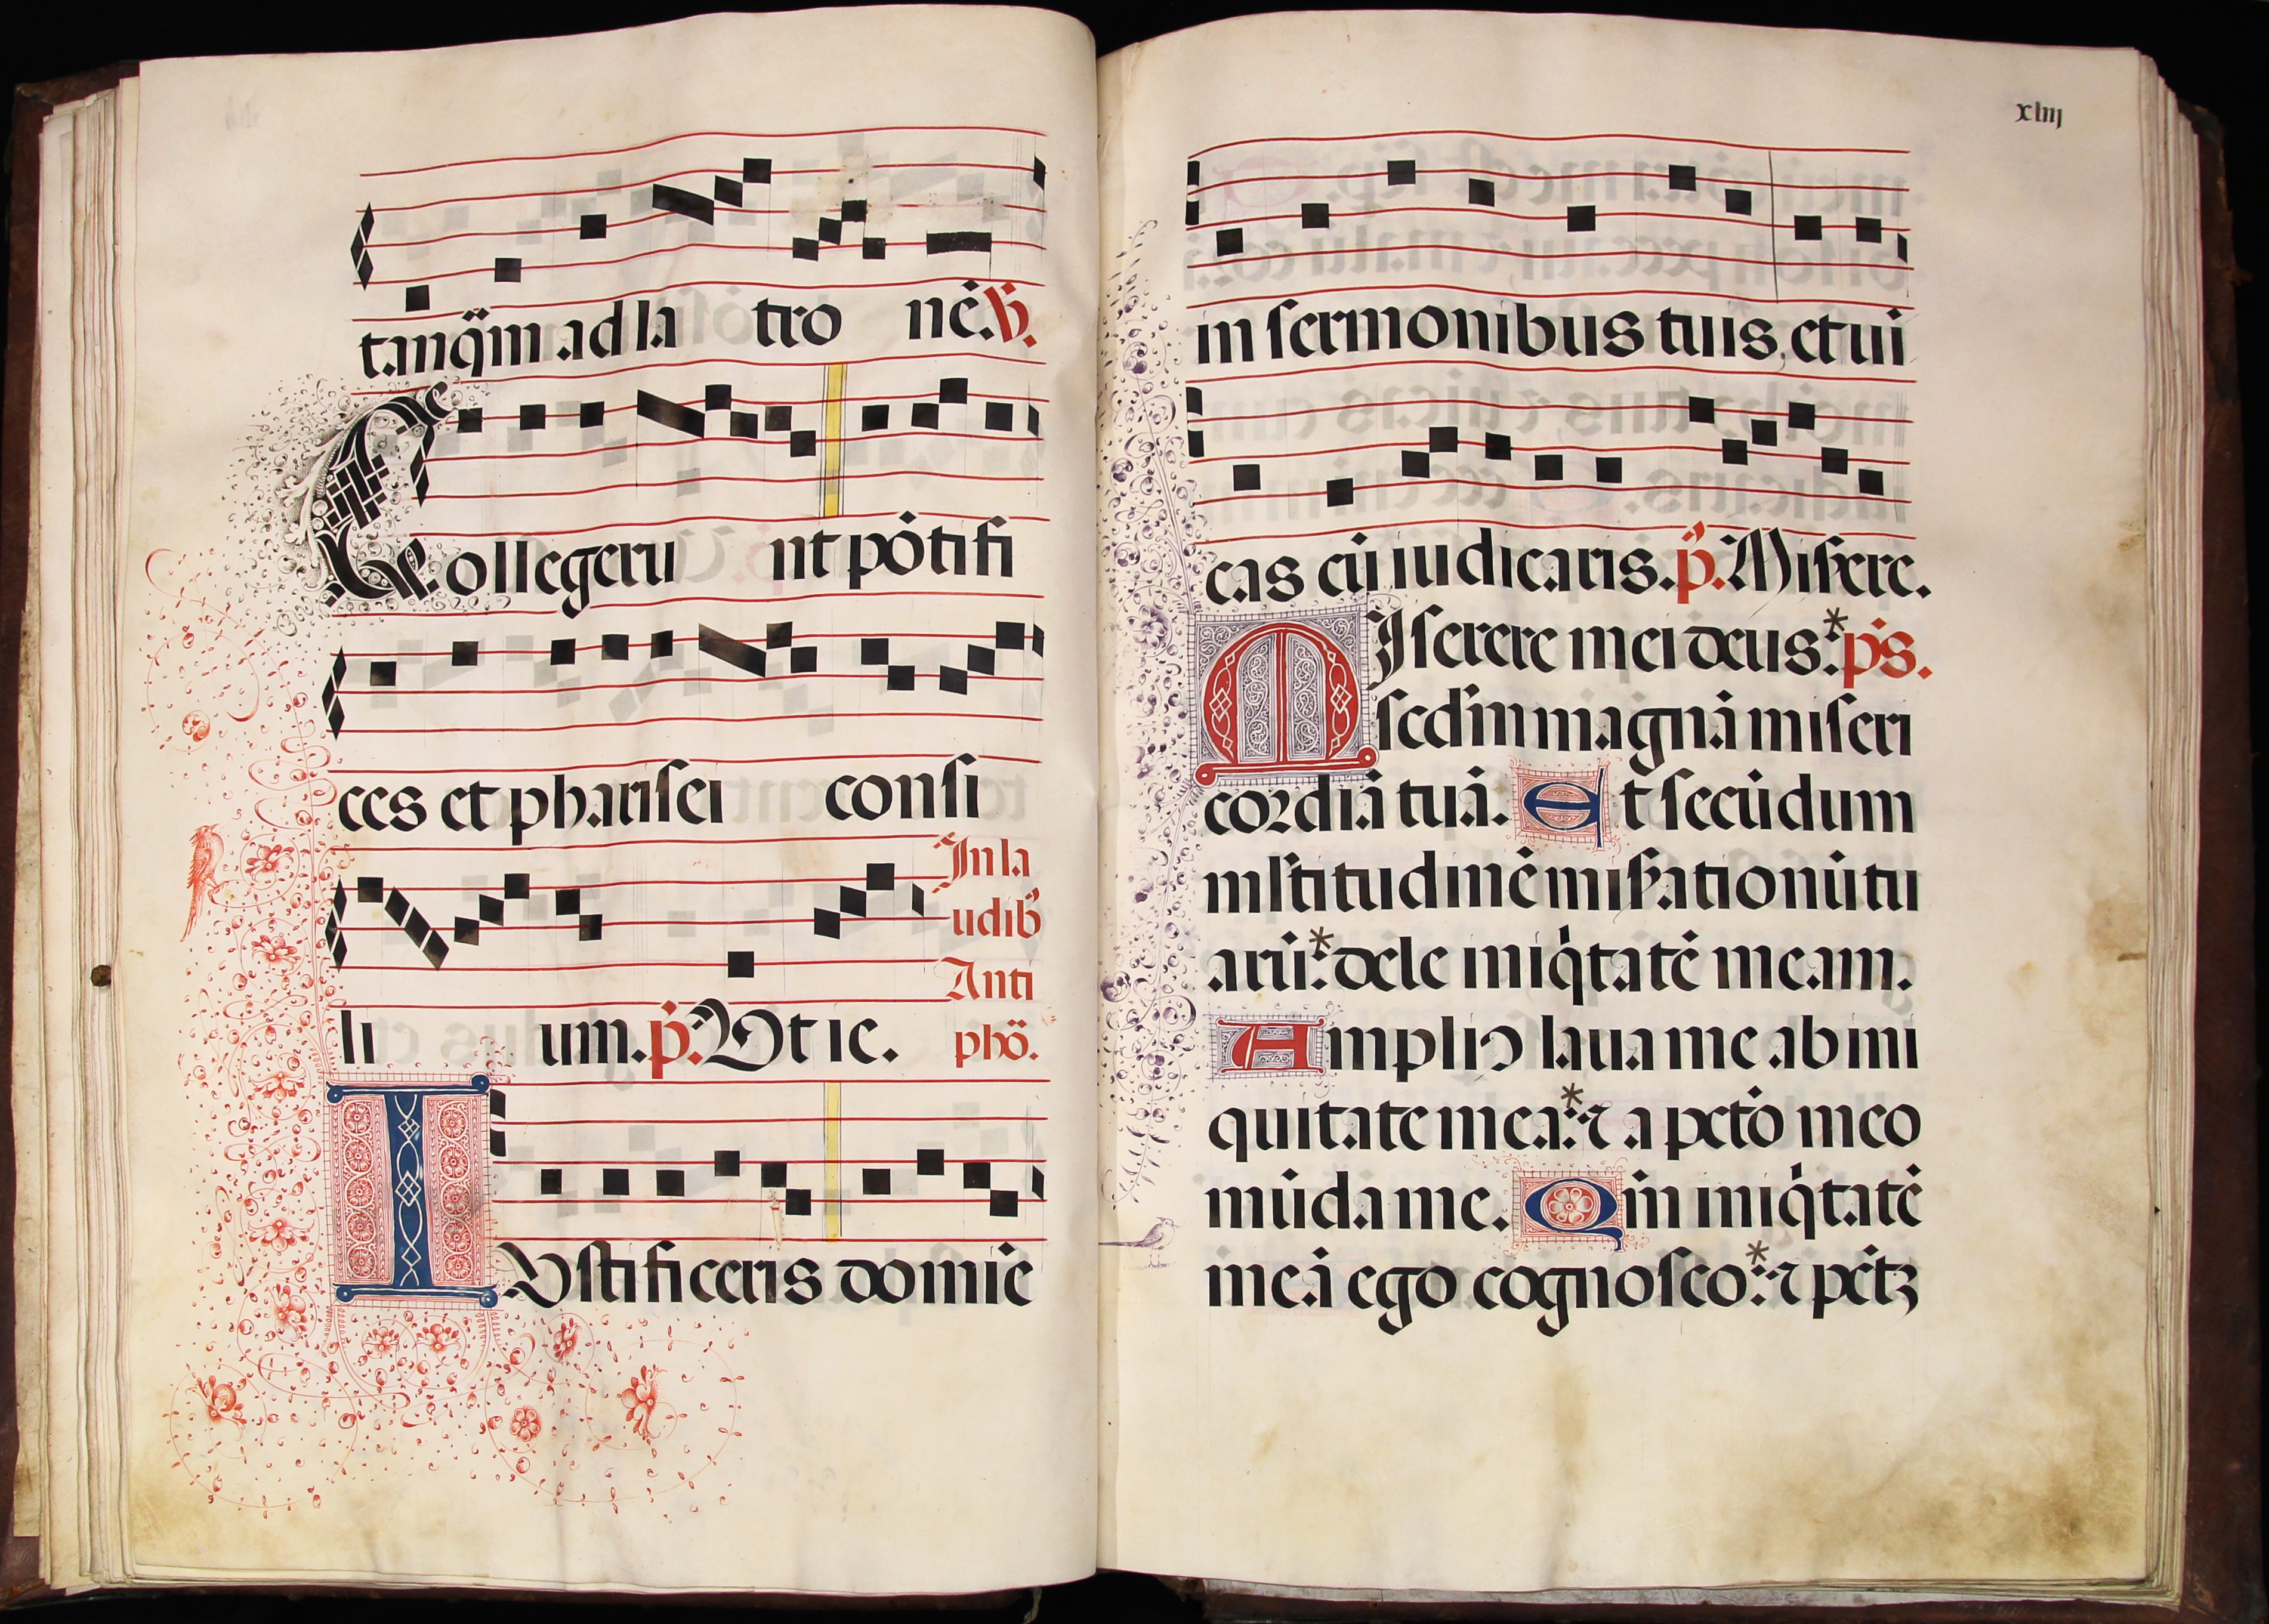 tanq̃m ad la tro nē. ℣.
Collegeru nt põtifi
ces et pharisei consi
li um. p̃. Vt ie.
In la
udib9
Anti
phõ.
IVstificeris domĩe
xliij
in sermonibus tuis, et ui
cas cũ iudicaris. p̃. Misere.
MIserere mei deus:* p̃s.
scd̃m magnã miseri
cordiã tuã. Et secũdum
mltitudinẽ misẽationũ tu
arũ:* dele iniq̃tatẽ meam.
Ampli9 laua me ab ini
quitate mea:* ⁊ a pctõ meo
mũda me. Qm̃ iniq̃tatẽ
meã ego cognosco:* ⁊ pctꝫ